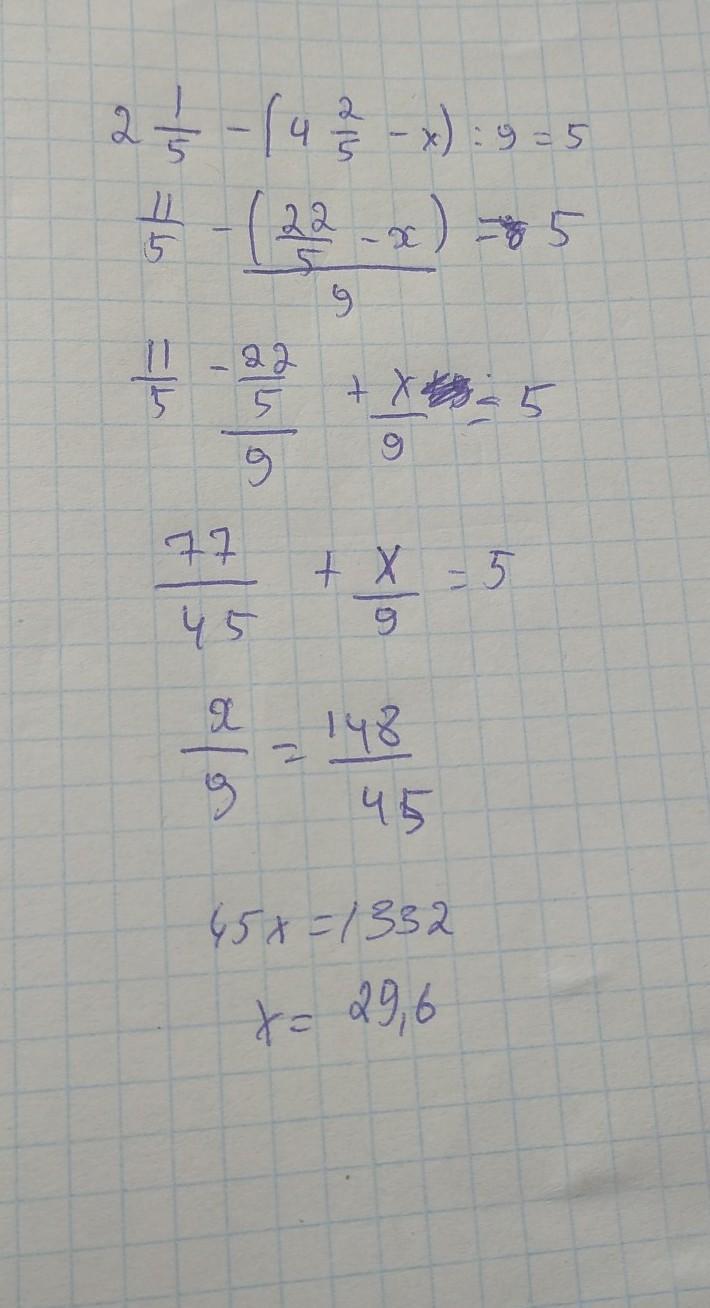 2 1/5 - (4 2/5 - x) : 9 = 5
11/5 - (22/5 - x)/9 = 5
11/5 - (22/5)/9 + x/9 = 5
77/45 + x/9 = 5
x/9 = 148/45
45x = 1332
x = 29,6